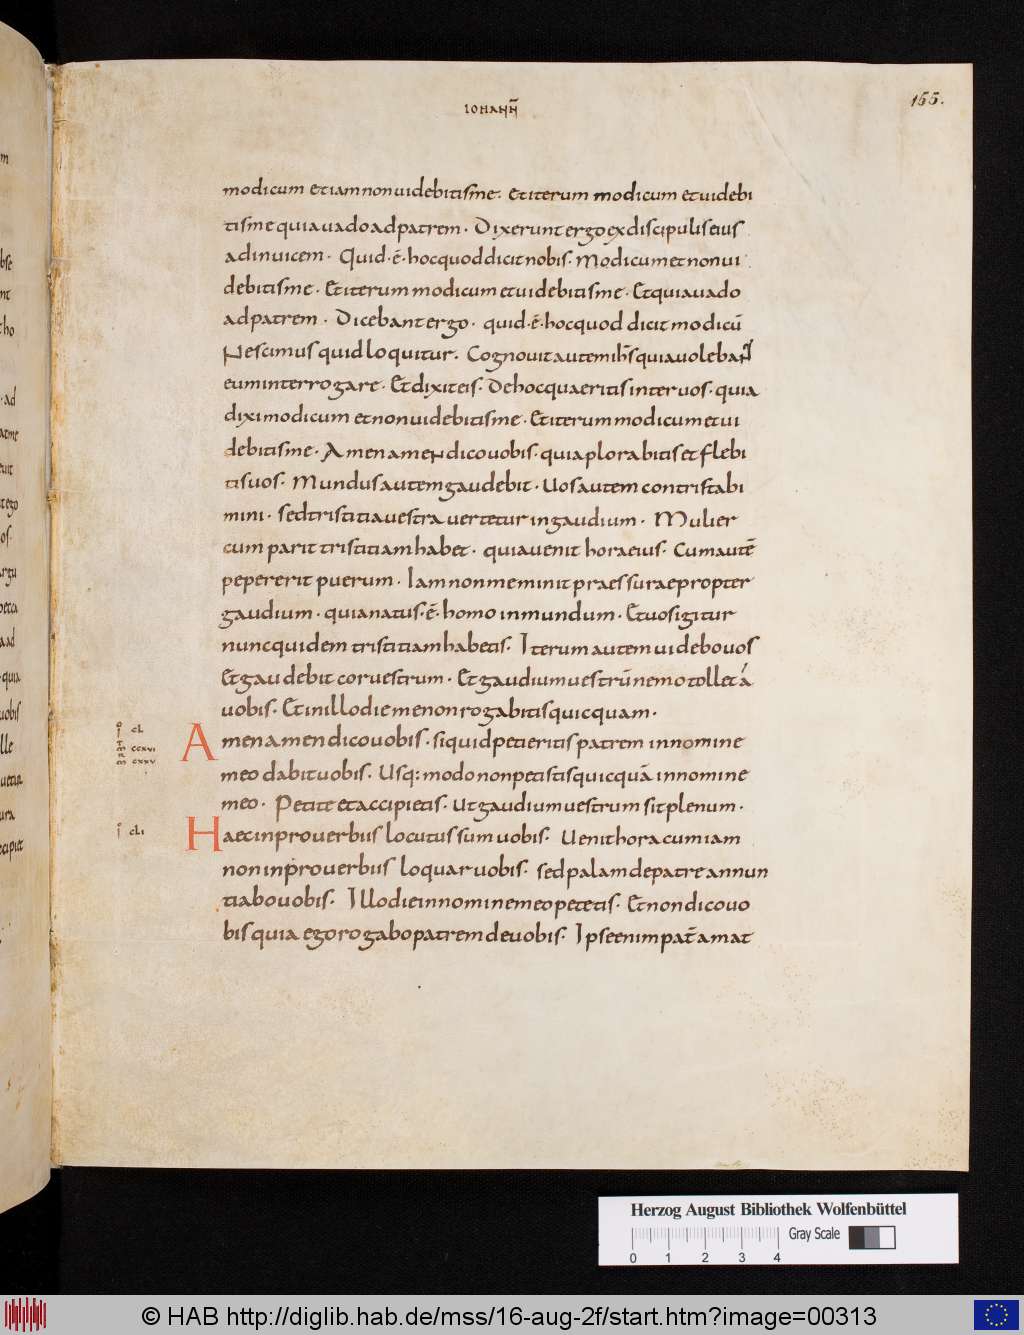 IOHANN̄
155.
modicum etiam non uidebitis me. et iterum modicum et uidebi
tis me quia uado ad patrem. Dixerunt ergo ex discipulis eius
ad inuicem. Quid ·ē· hoc quod dicit nobis. Modicum et non ui
debitis me. Et iterum modicum et uidebitis me. Et quia uado
ad patrem. Dicebant ergo. quid ·ē· hoc quod dicit modicū
Nescimus quid loquitur. Cognouit autem ih̅s quia uolebant
eum interrogare. Et dixit eis. De hoc quaeritis inter uos. quia
dixi modicum et non uidebitis me. Et iterum modicum et ui
debitis me. Amen amen dico uobis. quia plorabitis et flebi
tis uos. Mundus autem gaudebit. Uos autem contristabi
mini. sed tristitia uestra uertetur in gaudium. Mulier
cum parit tristitiam habet. quia uenit hora eius. Cum autē
pepererit puerum. Iam non meminit praessurae propter
gaudium. quia natus ·ē· homo in mundum. Et uos igitur
nunc quidem tristitiam habetis. Iterum autem uidebo uos
Et gaudebit cor uestrum. Et gaudium uestrū nemo tollet á
uobis. Et in illo die me non rogabitis quicquam.
Amen amen dico uobis. si quid petieritis patrem in nomine
meo dabit uobis. Usq: modo non petistis quicquā in nomine
meo. Petite et accipietis. ut gaudium uestrum sit plenum.
Haec in prouerbiis locutus sum uobis. Uenit hora cum iam
non in prouerbiis loquar uobis. sed palam de patre annun
tiabo uobis. Illo die in nomine meo petetis. Et non dico uo
bis quia ego rogabo patrem de uobis. Ipse enim pat̄ amat
CL
CCXVI
CXXV
CLI
Herzog August Bibliothek Wolfenbüttel
Gray Scale
0 1 2 3 4
© HAB http://diglib.hab.de/mss/16-aug-2f/start.htm?image=00313